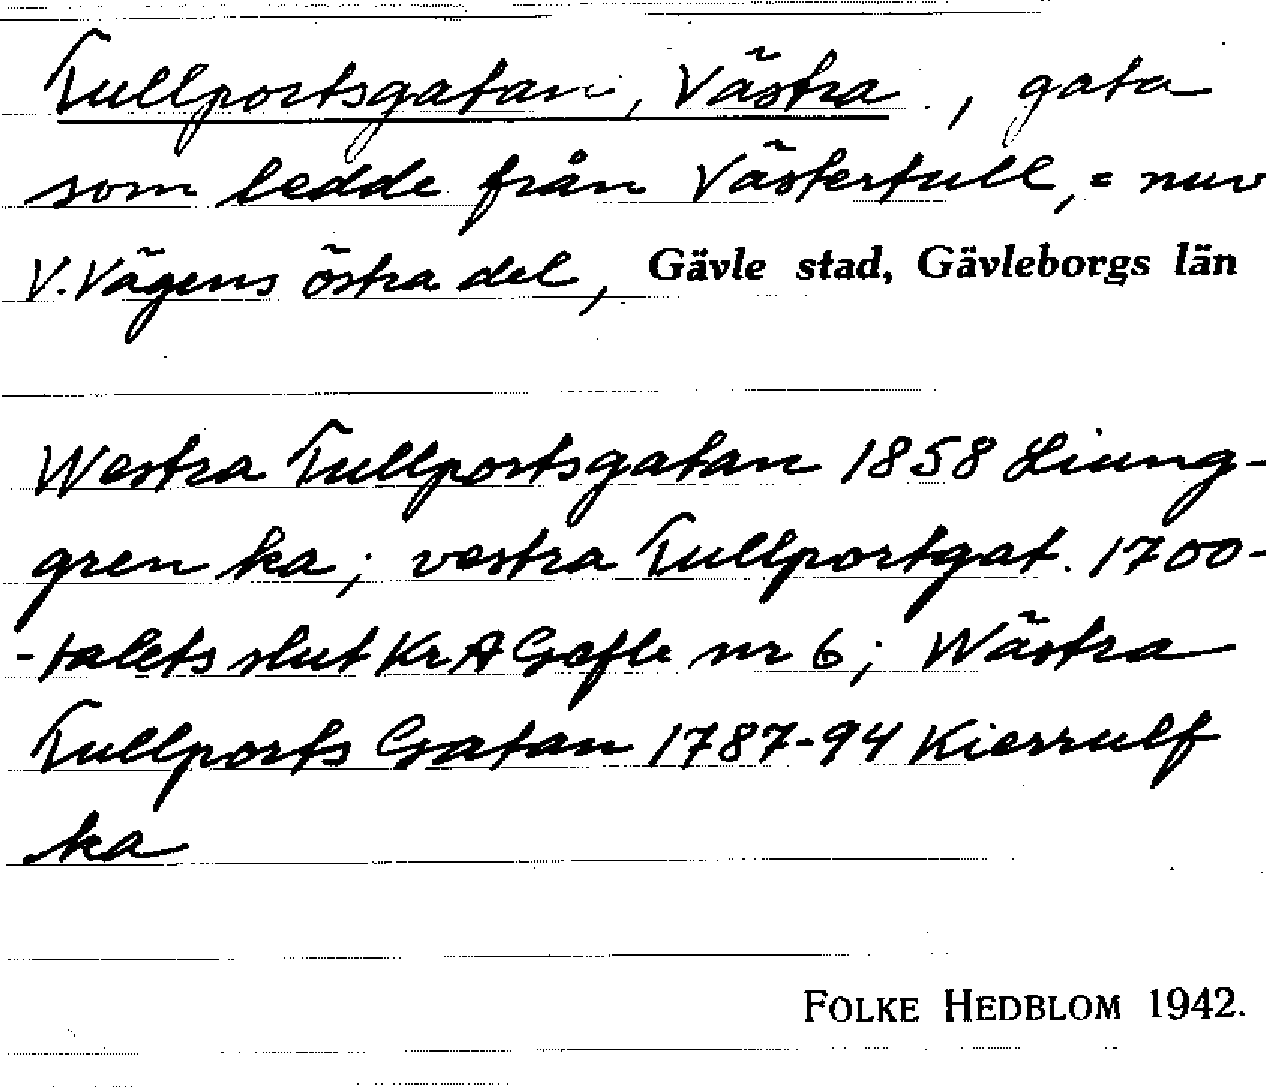 Tullportsgatan, Västra, gata
som ledde från Västertull, = nuv
V. Vägens östra del, Gävle stad, Gävleborgs län
Westra Tullportsgatan 1858 Liung-
gren ka; vestra Tullportgat. 1700-
-talets slut KrA Gefle nr 6; Wästra
Tullports Gatan 1787-94 Kierrulf
ka
FOLKE HEDBLOM 1942.